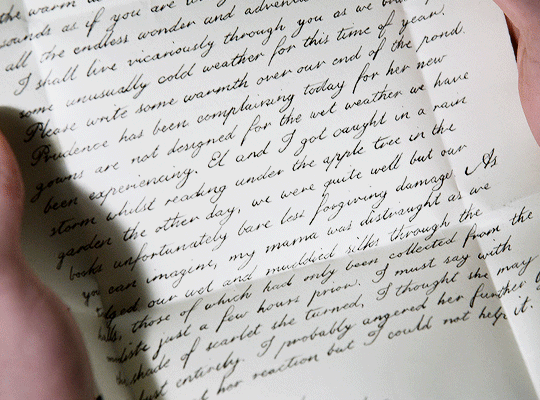 the warm
sounds as if you are
all the endless wonder and adven
I shall live vicariously through you as we
some unusually cold weather for this time of year.
Please write some warmth over our end of the pond.
Prudence has been complaining today for her new
gowns are not designed for the wet weather we have
been experiencing. El and I got caught in a rain
storm whilst reading under the apple tree in the
garden the other day, we were quite well but our
books unfortunately bare less forgiving damage. As
you can imagine, my mama was distraught as we
our wet and muddied silks through the
those of which had only been collected from the
just a few hours prior. I must say with
shade of scarlet she turned, I thought she may
entirely. I probably angered her further
her reaction but I could not help it.